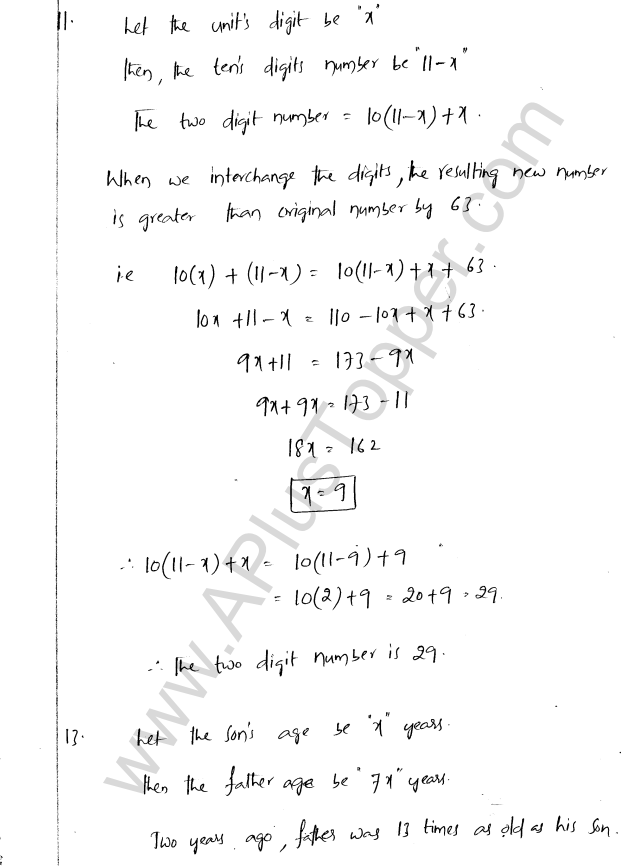 11. Let the unit's digit be "x"
then, the ten's digits number be "11-x"
The two digit number = 10(11-x)+x.
When we interchange the digits, the resulting new number
is greater than original number by 63.
i.e 10(x) + (11-x) = 10(11-x)+x+63.
10x +11-x = 110-10x+x+63.
9x+11 = 173-9x
9x+9x=173-11
18x = 162
x=9
∴ 10(11-x)+x = 10(11-9)+9
= 10(2)+9 = 20+9 = 29.
∴ The two digit number is 29.
13. Let the son's age be "x" years.
Then the father age be "7x" years.
Two years ago, father was 13 times as old as his son.
www.APlusTopper.com